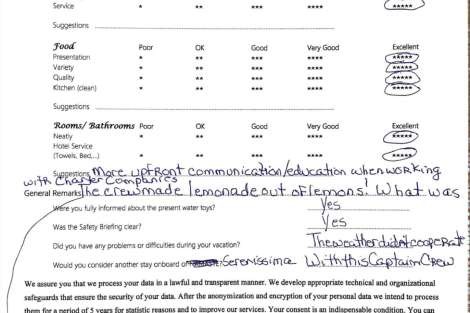 Service * ** *** **** *****
Suggestions
Food Poor OK Good Very Good Excellent
Presentation * ** *** **** *****
Variety * ** *** **** *****
Quality * ** *** **** *****
Kitchen (clean) * ** *** **** *****
Suggestions
Rooms/ Bathrooms Poor OK Good Very Good Excellent
Neatly * ** *** **** *****
Hotel Service
(Towels, Bed,...) * ** *** **** *****
Suggestions More upfront communication/education when working
with Charter Companies
General Remarks The crew made lemonade out of lemons! What was
Were you fully informed about the present water toys? Yes
Was the Safety Briefing clear? Yes
Did you have any problems or difficulties during your vacation? The weather didn't cooperate
Would you consider another stay onboard of Serenissima With this Captain Crew
We assure you that we process your data in a lawful and transparent manner. We develop appropriate technical and organizational
safeguards that ensure the security of your data. After the anonymization and encryption of your personal data we intend to process
them for a period of 5 years for statistic reasons and to improve our services. Your consent is an indispensable condition. You can